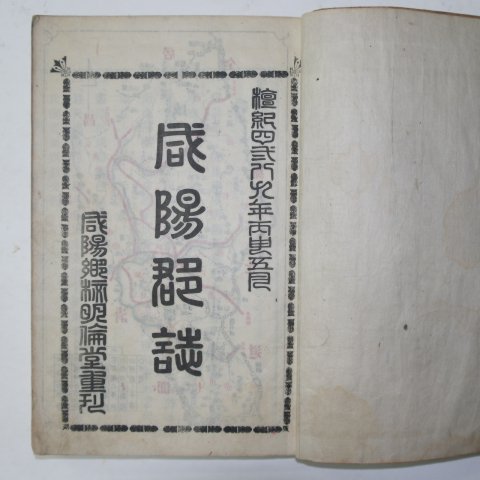 檀紀四弍八九年丙申五月
咸陽郡誌
咸陽鄉校明倫堂重刊